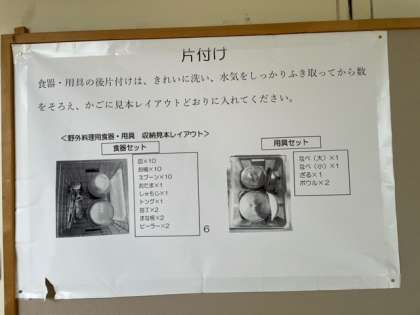 片付け
食器・用具の後片付けは、きれいに洗い、水気をしっかりふき取ってから数
をそろえ、かごに見本レイアウトどおりに入れてください。
＜野外料理用食器・用具　収納見本レイアウト＞
食器セット
皿×10
お椀×10
スプーン×10
おたま×1
しゃもじ×1
トング×1
包丁×2
まな板×2
ピーラー×2
6
用具セット
なべ（大）×1
なべ（小）×1
ざる×1
ボウル×2